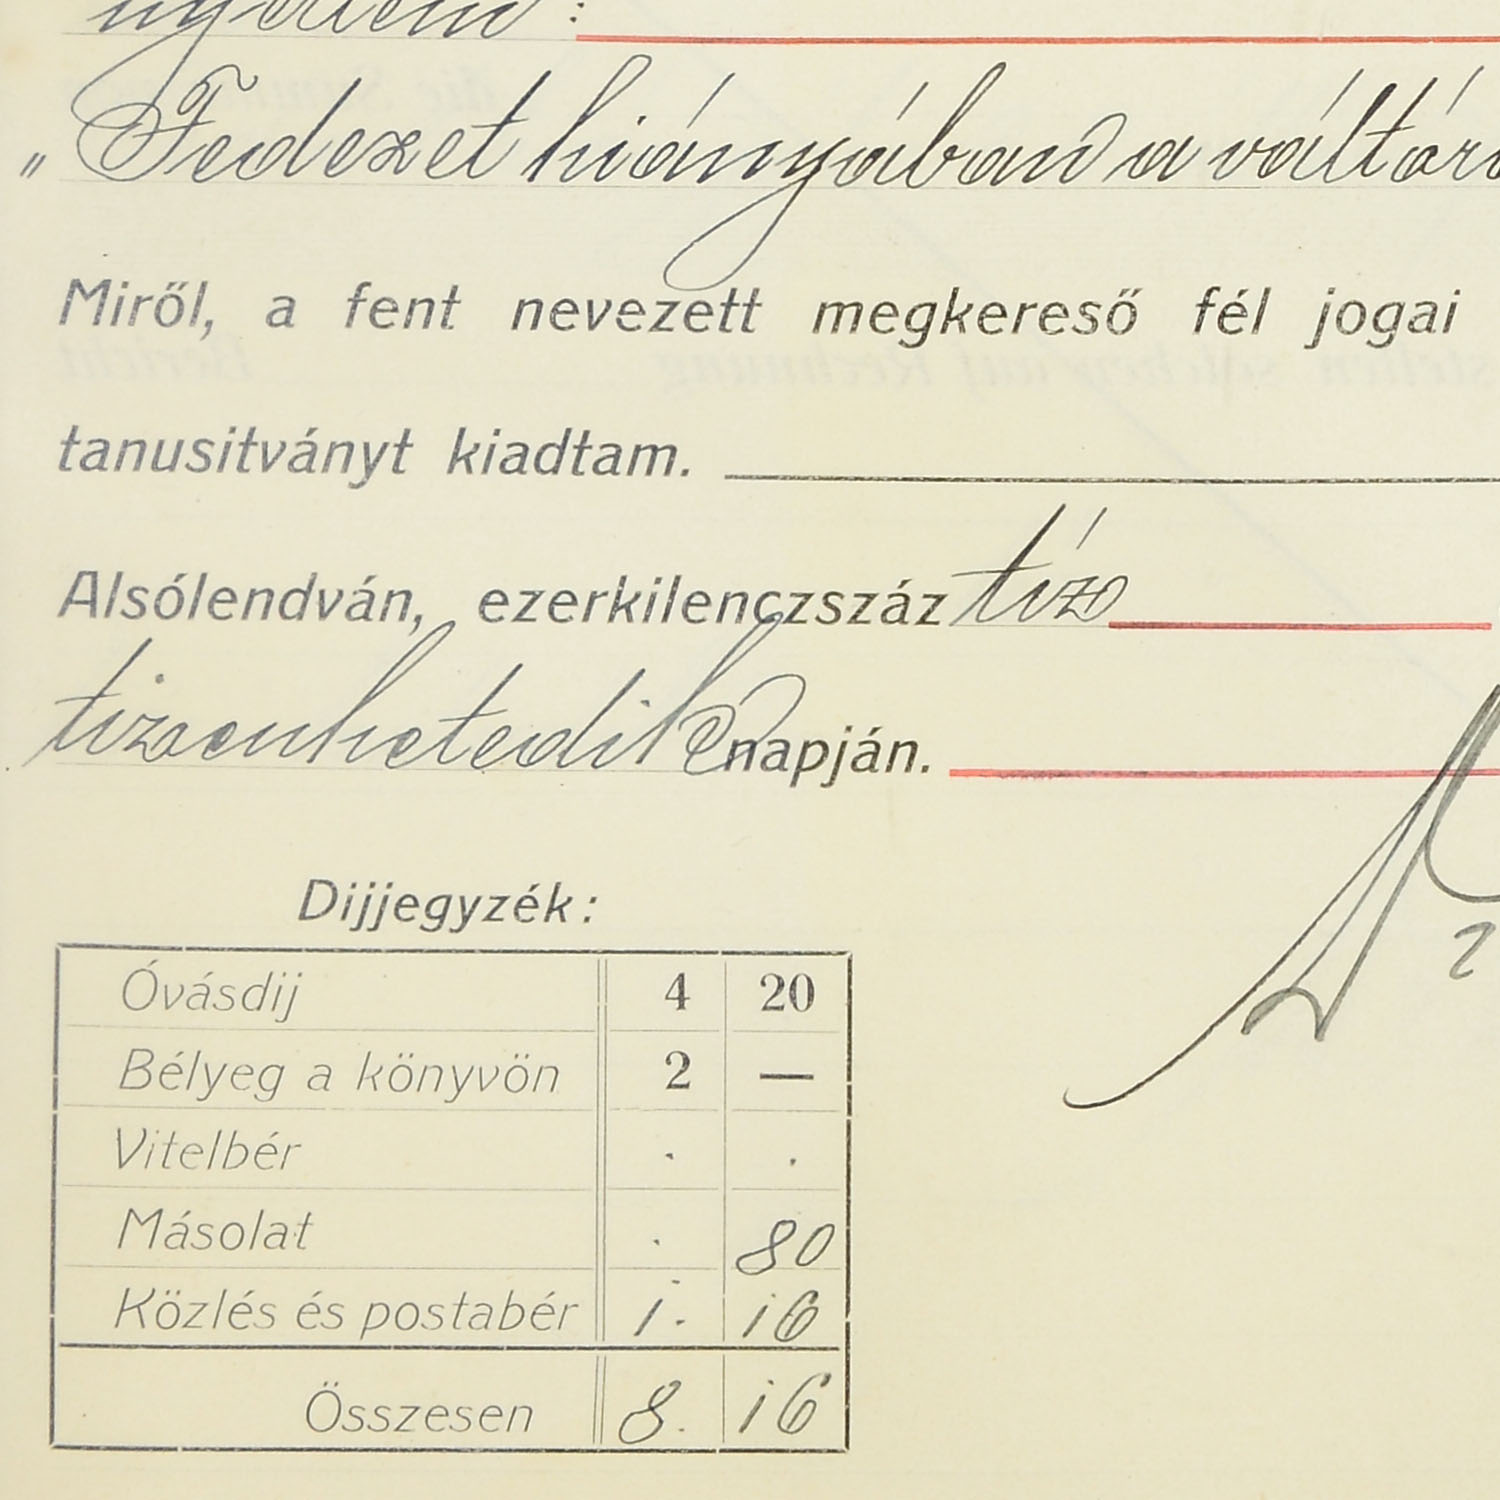 „Fedezet hiányában a váltó
Miről, a fent nevezett megkereső fél jogai
tanusitványt kiadtam.
Alsólendván, ezerkilenczszáz tiz
tizenhetedik napján.
Dijjegyzék:
Óvásdij 4 20
Bélyeg a könyvön 2 —
Vitelbér . .
Másolat . 80
Közlés és postabér 1. 16
Összesen 8. 16